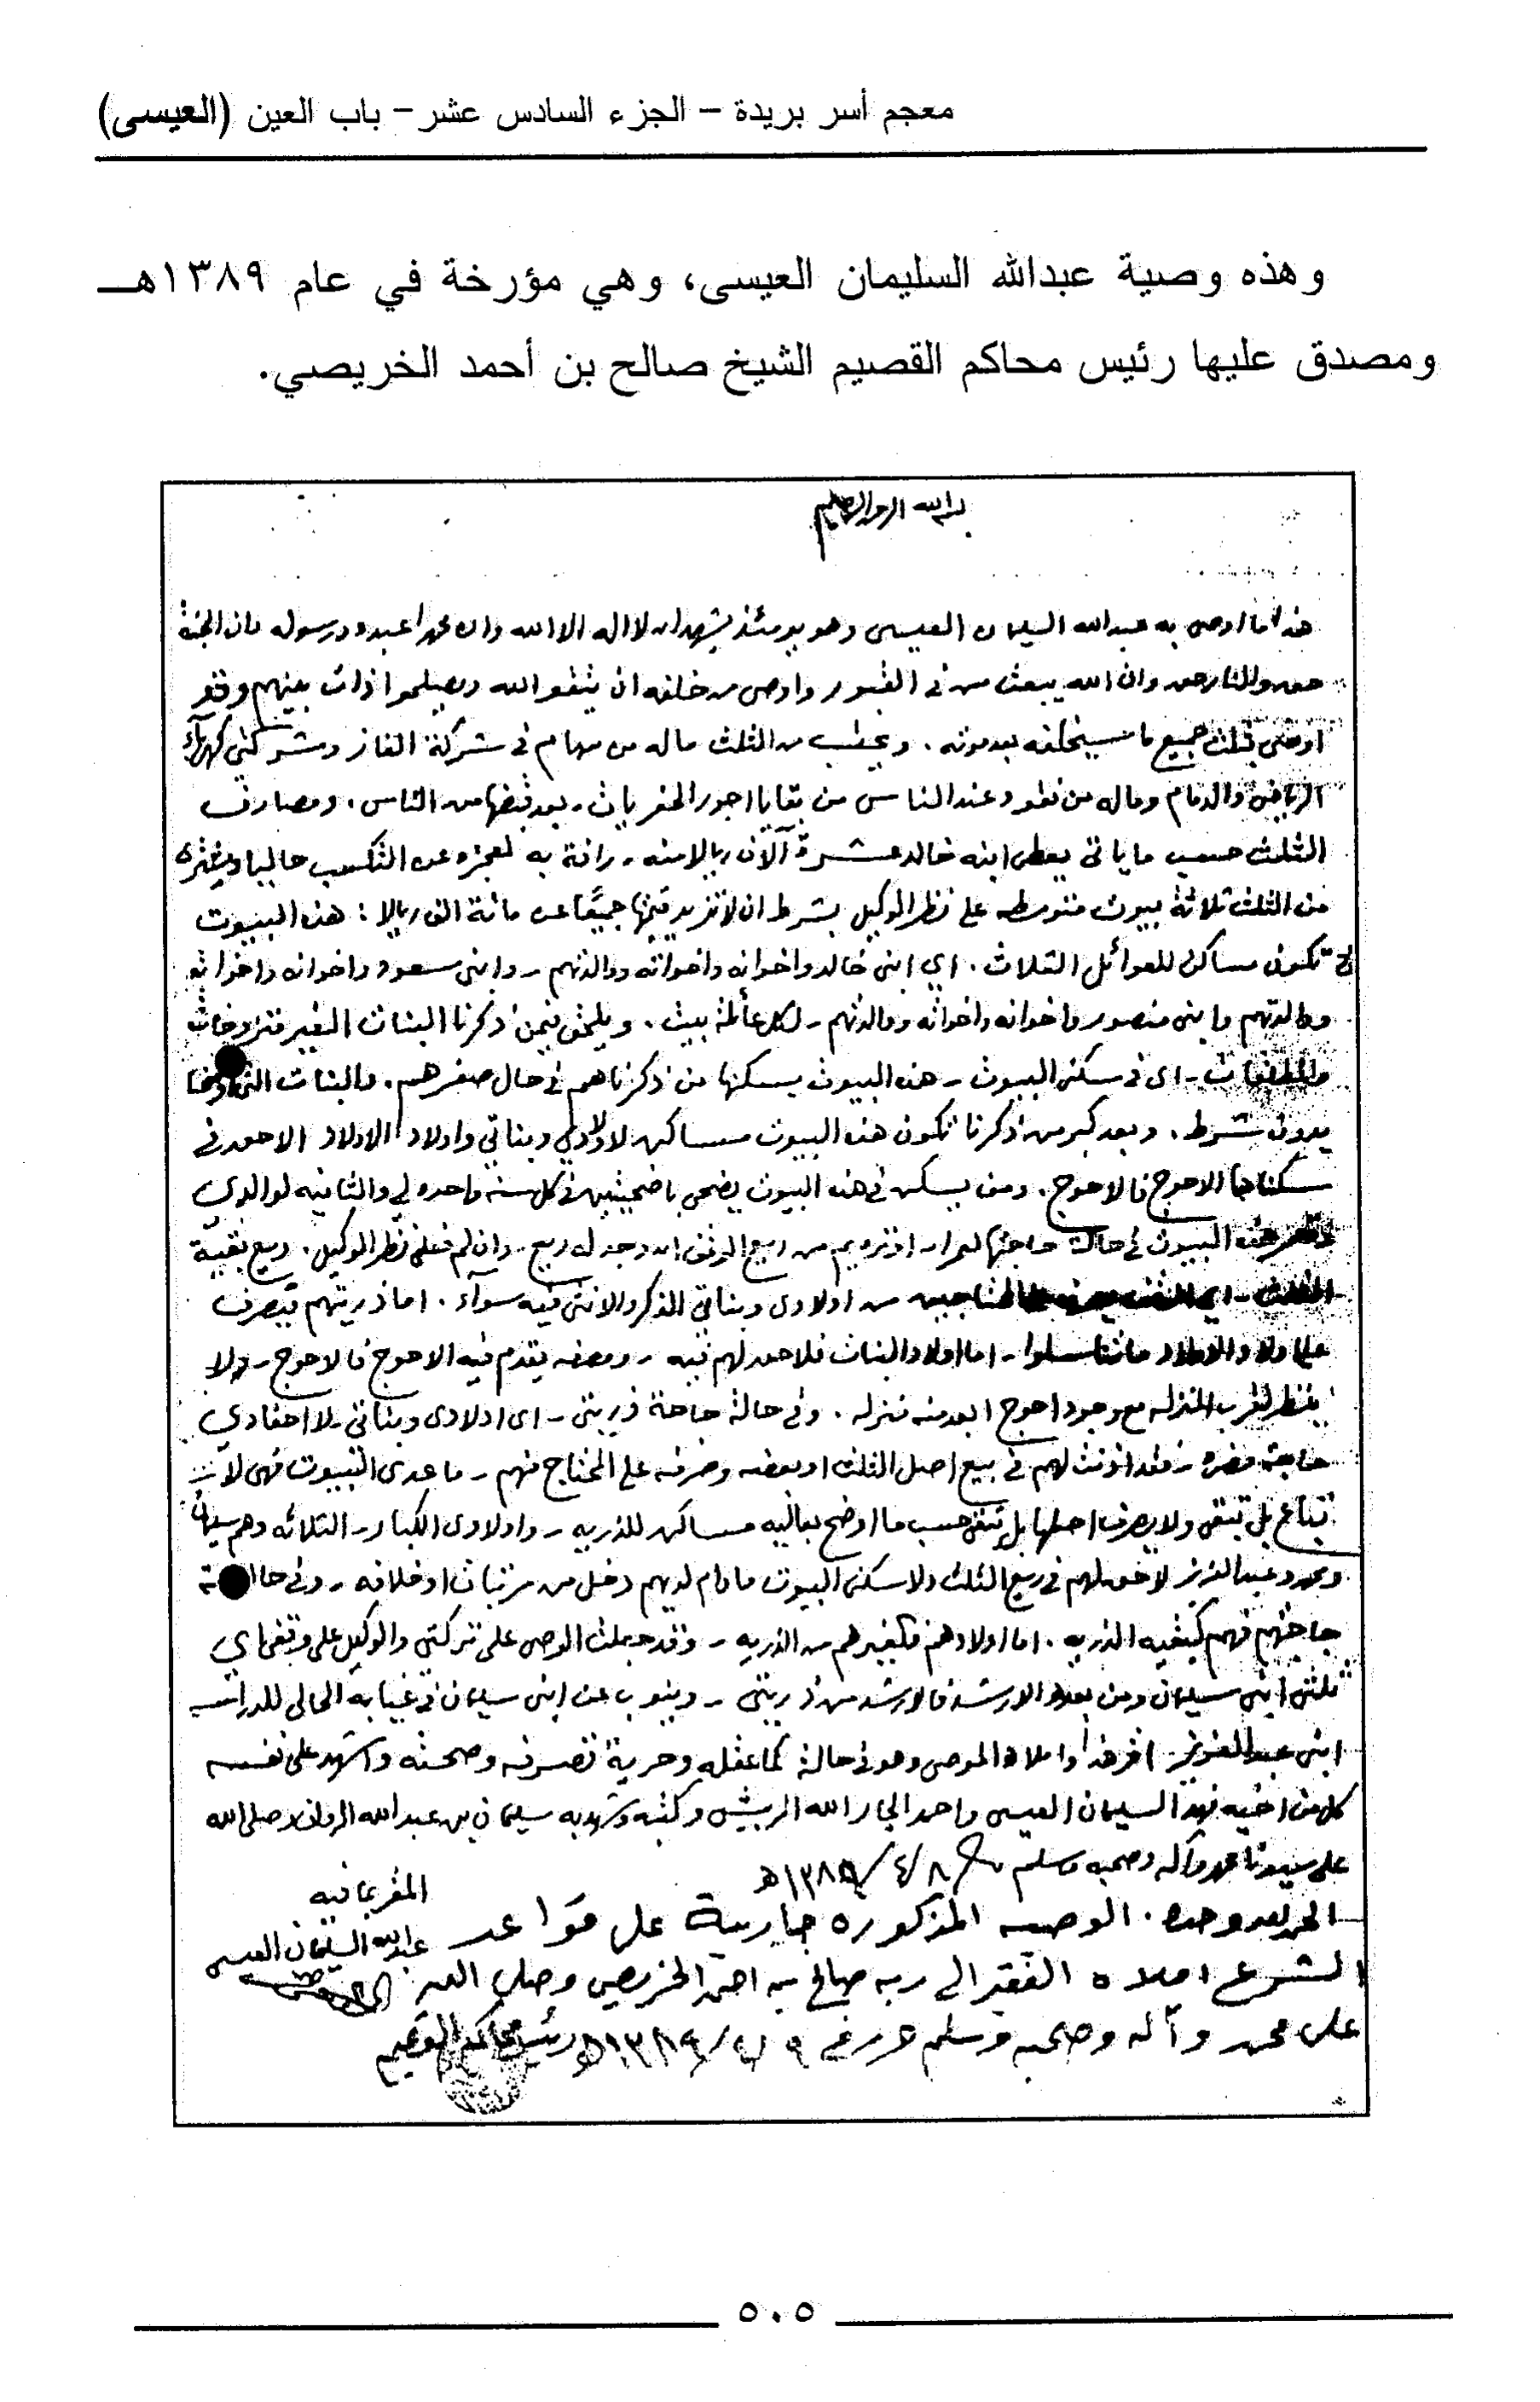 معجم أسر بريدة – الجزء السادس عشر – باب العين (العيسى)
وهذه وصية عبدالله السليمان العيسى، وهي مؤرخة في عام ١٣٨٩هـ
ومصدق عليها رئيس محاكم القصيم الشيخ صالح بن أحمد الخريصي.
بسم الله الرحمن الرحيم
هذا ما اوصى به عبدالله السليمان العيسى وهو يومئذ يشهد ان لا اله الا الله وان محمدا عبده ورسوله وان الجنة
حق والنار حق وان الله يبعث من في القبور واوصى من خلفه ان يتقوا الله ويصلحوا ذات بينهم وقد
اوصى بثلث جميع ما سيخلفه بعد موته . ويحتسب من الثلث ماله من سهام في شركة الغاز وشركتي كهرباء
الرياض والدمام وماله من نقود عند الناس من بقايا اجور الحفريات ـ بعد قبضها من الناس . ومصارف
الثلث حسب ما ياتي يعطى ابنه خالد عشرة آلاف ريالا منه ـ رافة به لعجزه عن التكسب حاليا ويشترى
من الثلث ثلاثة بيوت متوسطه على نظر الوكيل بشرط ان لا تزيد قيمتها جميعًا عن مائة الف ريالا : هذه البيوت
تكون مساكن للعوائل الثلاث . اي ابني خالد واخوانه واخواته ووالدتهم ـ وابني سعود واخوانه واخواته
ووالدتهم وابني منصور واخوانه واخواته ووالدتهم ـ لكل عائلة بيت . ويلحق بمن ذكرنا البنات الغير متزوجات
والمطلقات ـ اى في سكنى البيوت ـ هذه البيوت يسكنها من ذكرناهم في حال صغرهم . والبنات
بدون شرط . وبعد كبر من ذكرنا تكون هذه البيوت مساكن لاولادي وبناتي واولاد الاولاد الاحق في
سكناها الاحوج فالاحوج . ومن يسكن في هذه البيوت يضحي باضحيتين في كل سنه واحده لي والثانيه لوالدي
هذه البيوت في حالة حاجتها لعمار او ترميم من ريع الوقف ان وجد له ريع ـ وان لم فعلى نظر الوكيل . وريع بقية
الثلث ـ اي من اولادى وبناتي الذكر والانثى فيه سوآء . اما ذريتهم فيصرف
على اولاد الاولاد ما تناسلوا ـ اما اولاد البنات فلا حق لهم فيه ـ ومصرفه يقدم فيه الاحوج فالاحوج ـ ولا
ينظر لقرب المنزله مع وجود احوج ابعد منه منزله . وفي حالة حاجة ذريتي ـ اى اولادى وبناتي لا احفادي
حاجة مضره ـ فقد اذنت لهم في بيع اصل الثلث او بعضه وصرفه على المحتاج منهم ـ ما عدى البيوت فهى لا
تباع بل تبقى ولا يصرف اصلها بل تبقى حسب ما اوضح بعاليه مساكن للذريه ـ واولادى الكبار ـ الثلاثه وهم سليمان
ومحمد وعبدالعزيز لا حق لهم في ريع الثلث ولا سكنى البيوت مادام لديهم دخل من مرتبات او خلافه ـ وفي حالة
حاجتهم فهم كبقية الذريه . اما اولادهم فكغيرهم من الذريه ـ وقد جعلت الوصى على تركتي والوكيل على وقفي اي
ثلثي ابني سليمان ومن بعده الارشد فالارشد من ذريتي ـ وينوب عن ابني سليمان في غيابه الحالي للدراسه
ابني عبدالعزيز . اقر هذا واملاه الموصى وهو في حالة كما عقله وحرية تصرفه وصحته واشهد على نفسه
كل من اخيه فهد السليمان العيسى واحمد الجار الله الربيش وكتبه وشهد به سليمان بن عبدالله الرواف وصلى الله
على سيدنا محمد وآله وصحبه وسلم ٨/٤/١٣٨٩هـ
المقر بما فيه
عبدالله السليمان العيسى
الحمد لله وحده . الوصيه المذكوره جارية على قواعد
الشرع املاه الفقير الى ربه صالح بن احمد الخريصي وصلى الله
على محمد وآله وصحبه وسلم حرر في ٩/٤/١٣٨٩هـ رئيس محاكم القصيم
٥٠٥